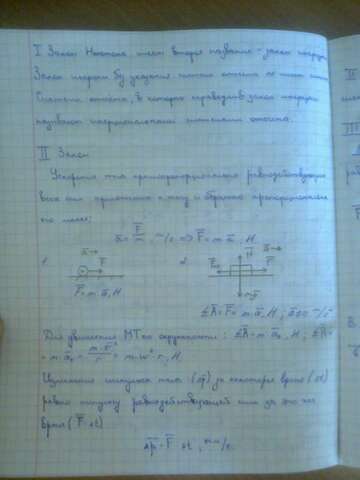 I Закон Ньютона имеет второе название - закон инерции
Закон инерции без указания системы отсчета не имеет
Система отсчёта, в которой справедлив закон инерции
называют инерциональными системами отсчета.
II Закон
Ускорение тела прямопропорционально равнодействующей
всех сил приложенных к телу и обратно пропорционально
его массе:
a = F/m, => F = m·a, H
1. a
F
F = m·a, H
2. N a
F
m·g
ΣR = F = m·a, H;
Для движения МТ по окружности: ΣR = m·aₙ, H;
= m·aₙ = m·v²/r = m·ω²·r, H
Изменение импульса тела (Δp) за некоторое время (Δt)
равно импульсу равнодействующей силы за это же
время (F·Δt)
Δp = F·Δt,